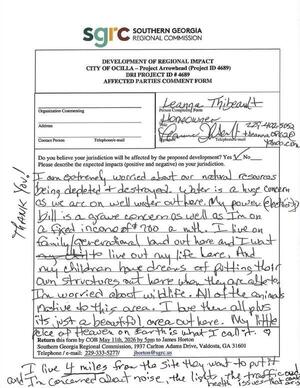 sgrc SOUTHERN GEORGIA
REGIONAL COMMISSION
DEVELOPMENT OF REGIONAL IMPACT
CITY OF OCILLA – Project Arrowhead (Project 4689)
DRI PROJECT ID # 4689
AFFECTED PARTIES COMMENT FORM
Leanna Thibeault
Homeowner
Organization Commenting
Contact Person
Telephone/e-mail
Contact Person
Telephone/e-mail
yahoo.com
Do you believe your jurisdiction will be affected by the proposed development? Yes ✓ No
Please describe the expected impacts (positive and negative) on your jurisdiction.
THANK YOU!
I am extremely worried about our natural resources
being depleted & destroyed. Water is a huge concern
as we are on well under out here. My power (electricity)
bill is a grave concern as well as I'm on
a fixed income of $700 a mth. I live on
family generational land out here and I want
to live out my life here. And
my children have dreams of putting their
own structures out here when they are able to.
I'm worried about wildlife. All of the animals
native to this area. I love them all plus
its just a beautiful area out here. My little
piece of Heaven on Earth is what I call it.
Return this form by COB May 11th, 2026 by 5pm to James Horton
Southern Georgia Regional Commission, 1937 Carlton Adams Drive, Valdosta, GA 31601
Telephone / e-mail: 229-333-5277/ jhorton@sgrc.us
I live 4 miles from the site they want to put it
and I'm concerned about noise, the light, the traffic and
health issues